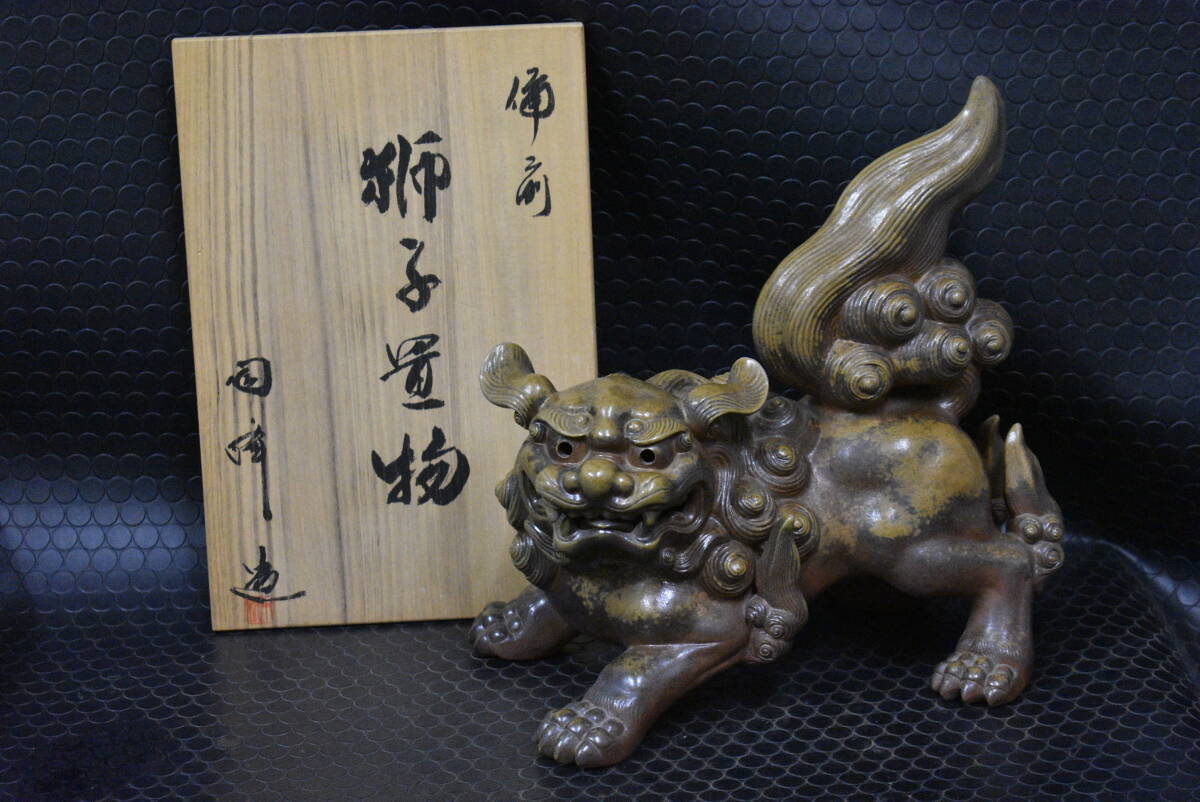 備前
獅子置物
陶峰造